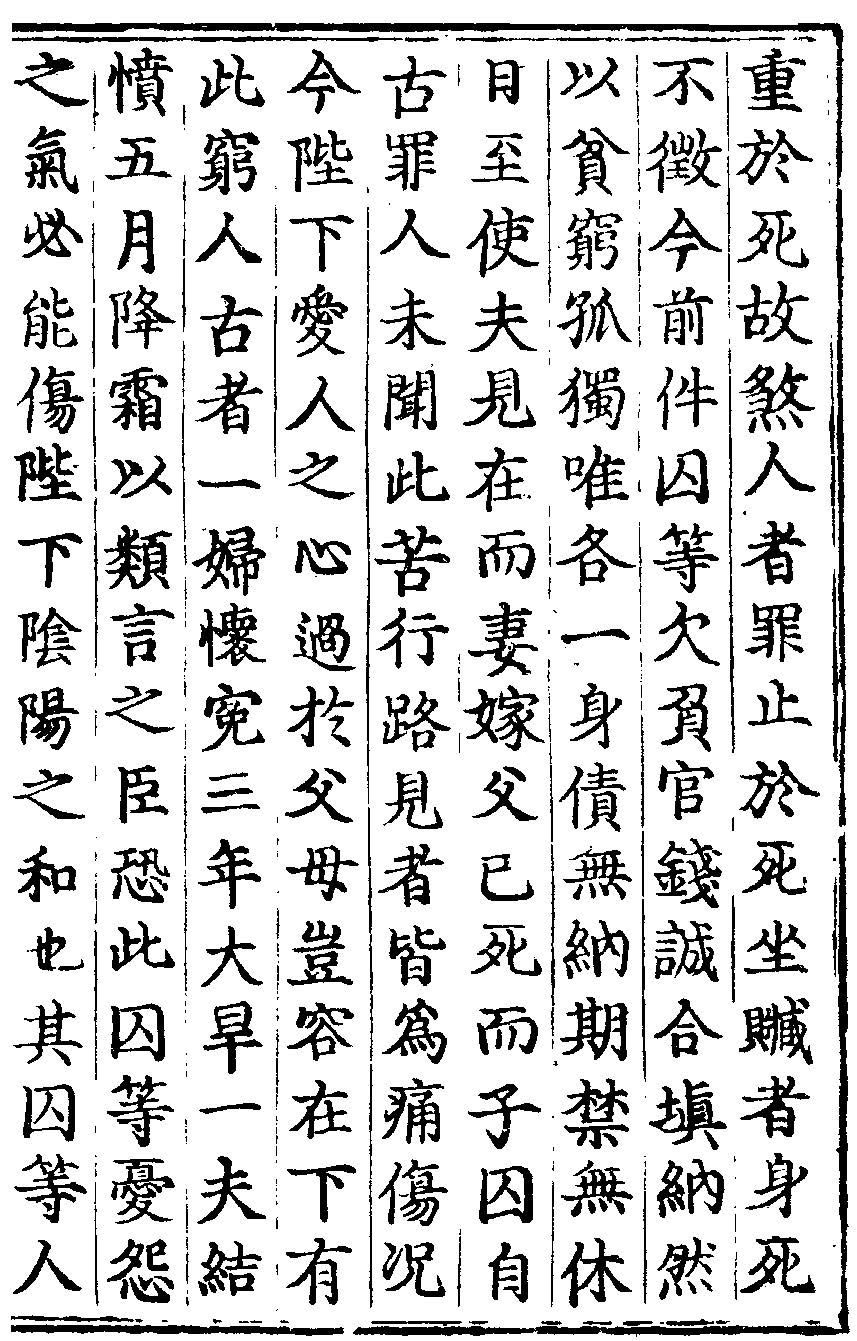 重於死故煞人者罪止於死坐贓者身死
不徵今前件囚等欠負官錢誠合塡納然
以貧窮孤獨唯各一身債無納期禁無休
日至使夫見在而妻嫁父已死而子囚自
古罪人未聞此苦行路見者皆為痛傷況
今陛下愛人之心過於父母豈容在下有
此窮人古者一婦懷冤三年大旱一夫結
憤五月降霜以類言之臣恐此囚等憂怨
之氣必能傷陛下陰陽之和也其囚等人